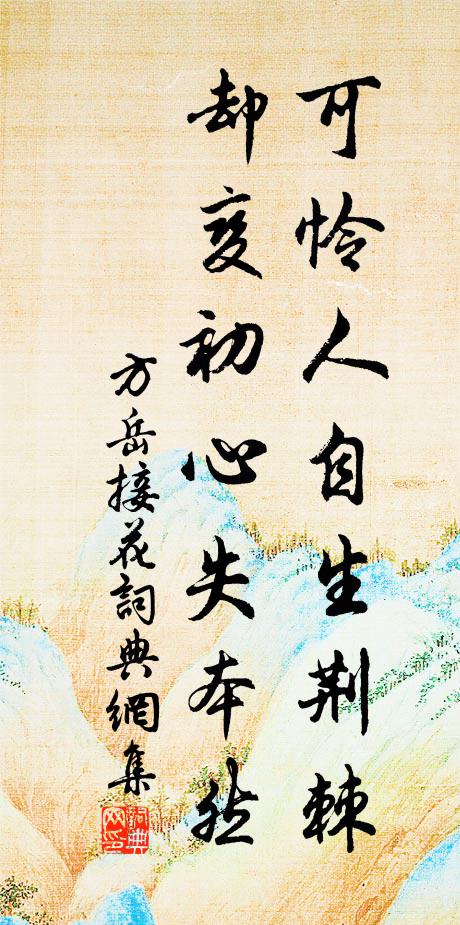 可怜人自生荆棘
却变初心失本然
方岳接花詞典網集
詞典網印